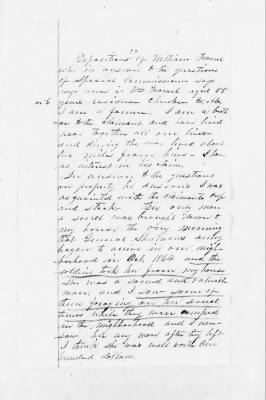 29
Depositions of William
who in answer to the questions
of Special Commissioner says
my name is Wm aged 55
No 6 years residence Cherokee Co Ala
I am a farmer. I am a brother
to the claimant and have lived
near together all our lives
and during the war lived about
two miles from him. I have
no interest in his claim
In answer to the questions
on property he answers I was
acquainted with the claimants crop
and stock. One gray mare
a sorrel was brought down to
my house the very morning
that General Shermans army
began to arrive in our neigh-
borhood in Oct 1864 and the
soldiers took her from my house
She was a sound and valuable
mare, and I saw some of
them foraging on him several
times while they were camped
in the neighborhood and I never
saw her any more after they left
I think she was well worth One
hundred dollars